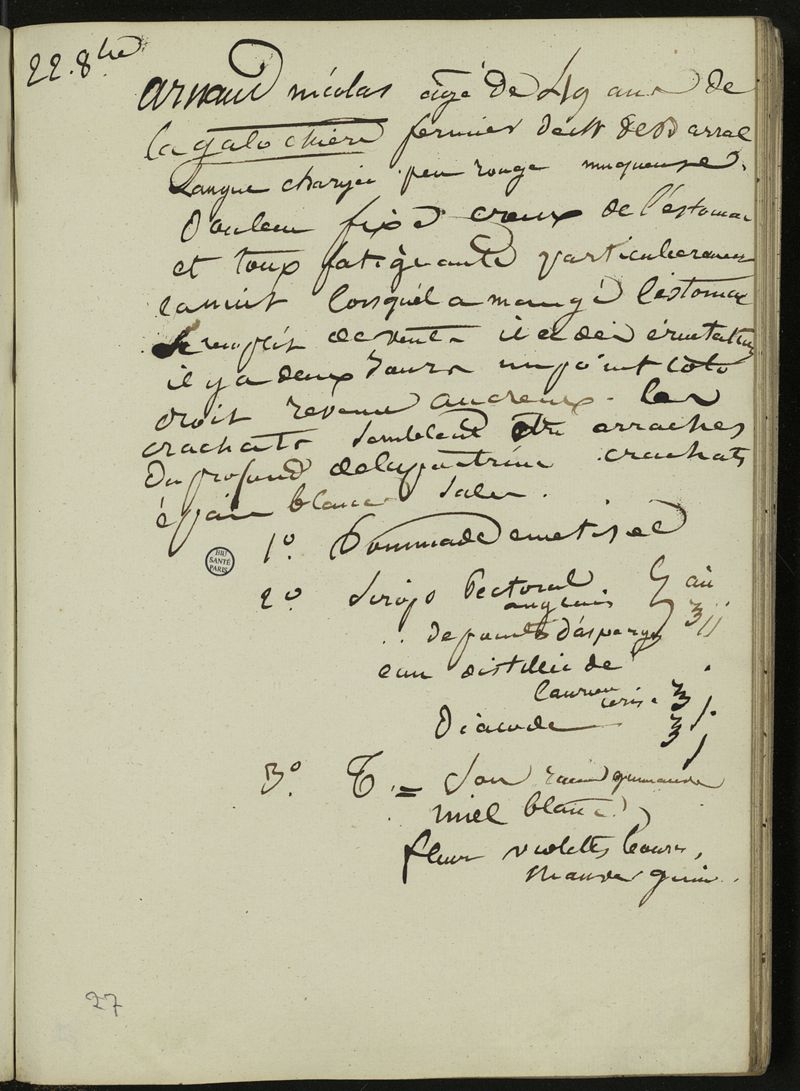 22. 8bre
arnaud nicolas agé de 49 ans de
la galochiere fermier de Mr de Barral
Langue chargée peu rouge muqueuse.
douleur fixe creux de l'estomac
et toux fatigante particulierement
la nuit lorsquél a mangé l'estomac
se remplit de vents il a des éructations
il y a deux Jours un point coté
droit revenu au creux. les
crachats semblent être arrachés
du profond de la poitrine crachats
épais blancs sales.
1º. Pommade emetisee
BIU
SANTÉ
PARIS
2º Sirop Pectoral aä
anglais
.. de pointes d'asperges ʒij
eau distillée de
laurier cerise ʒj.
Diacode ʒj
3º. T. = Son racine guimauve
miel blanc
fleurs violettes
mauves
27